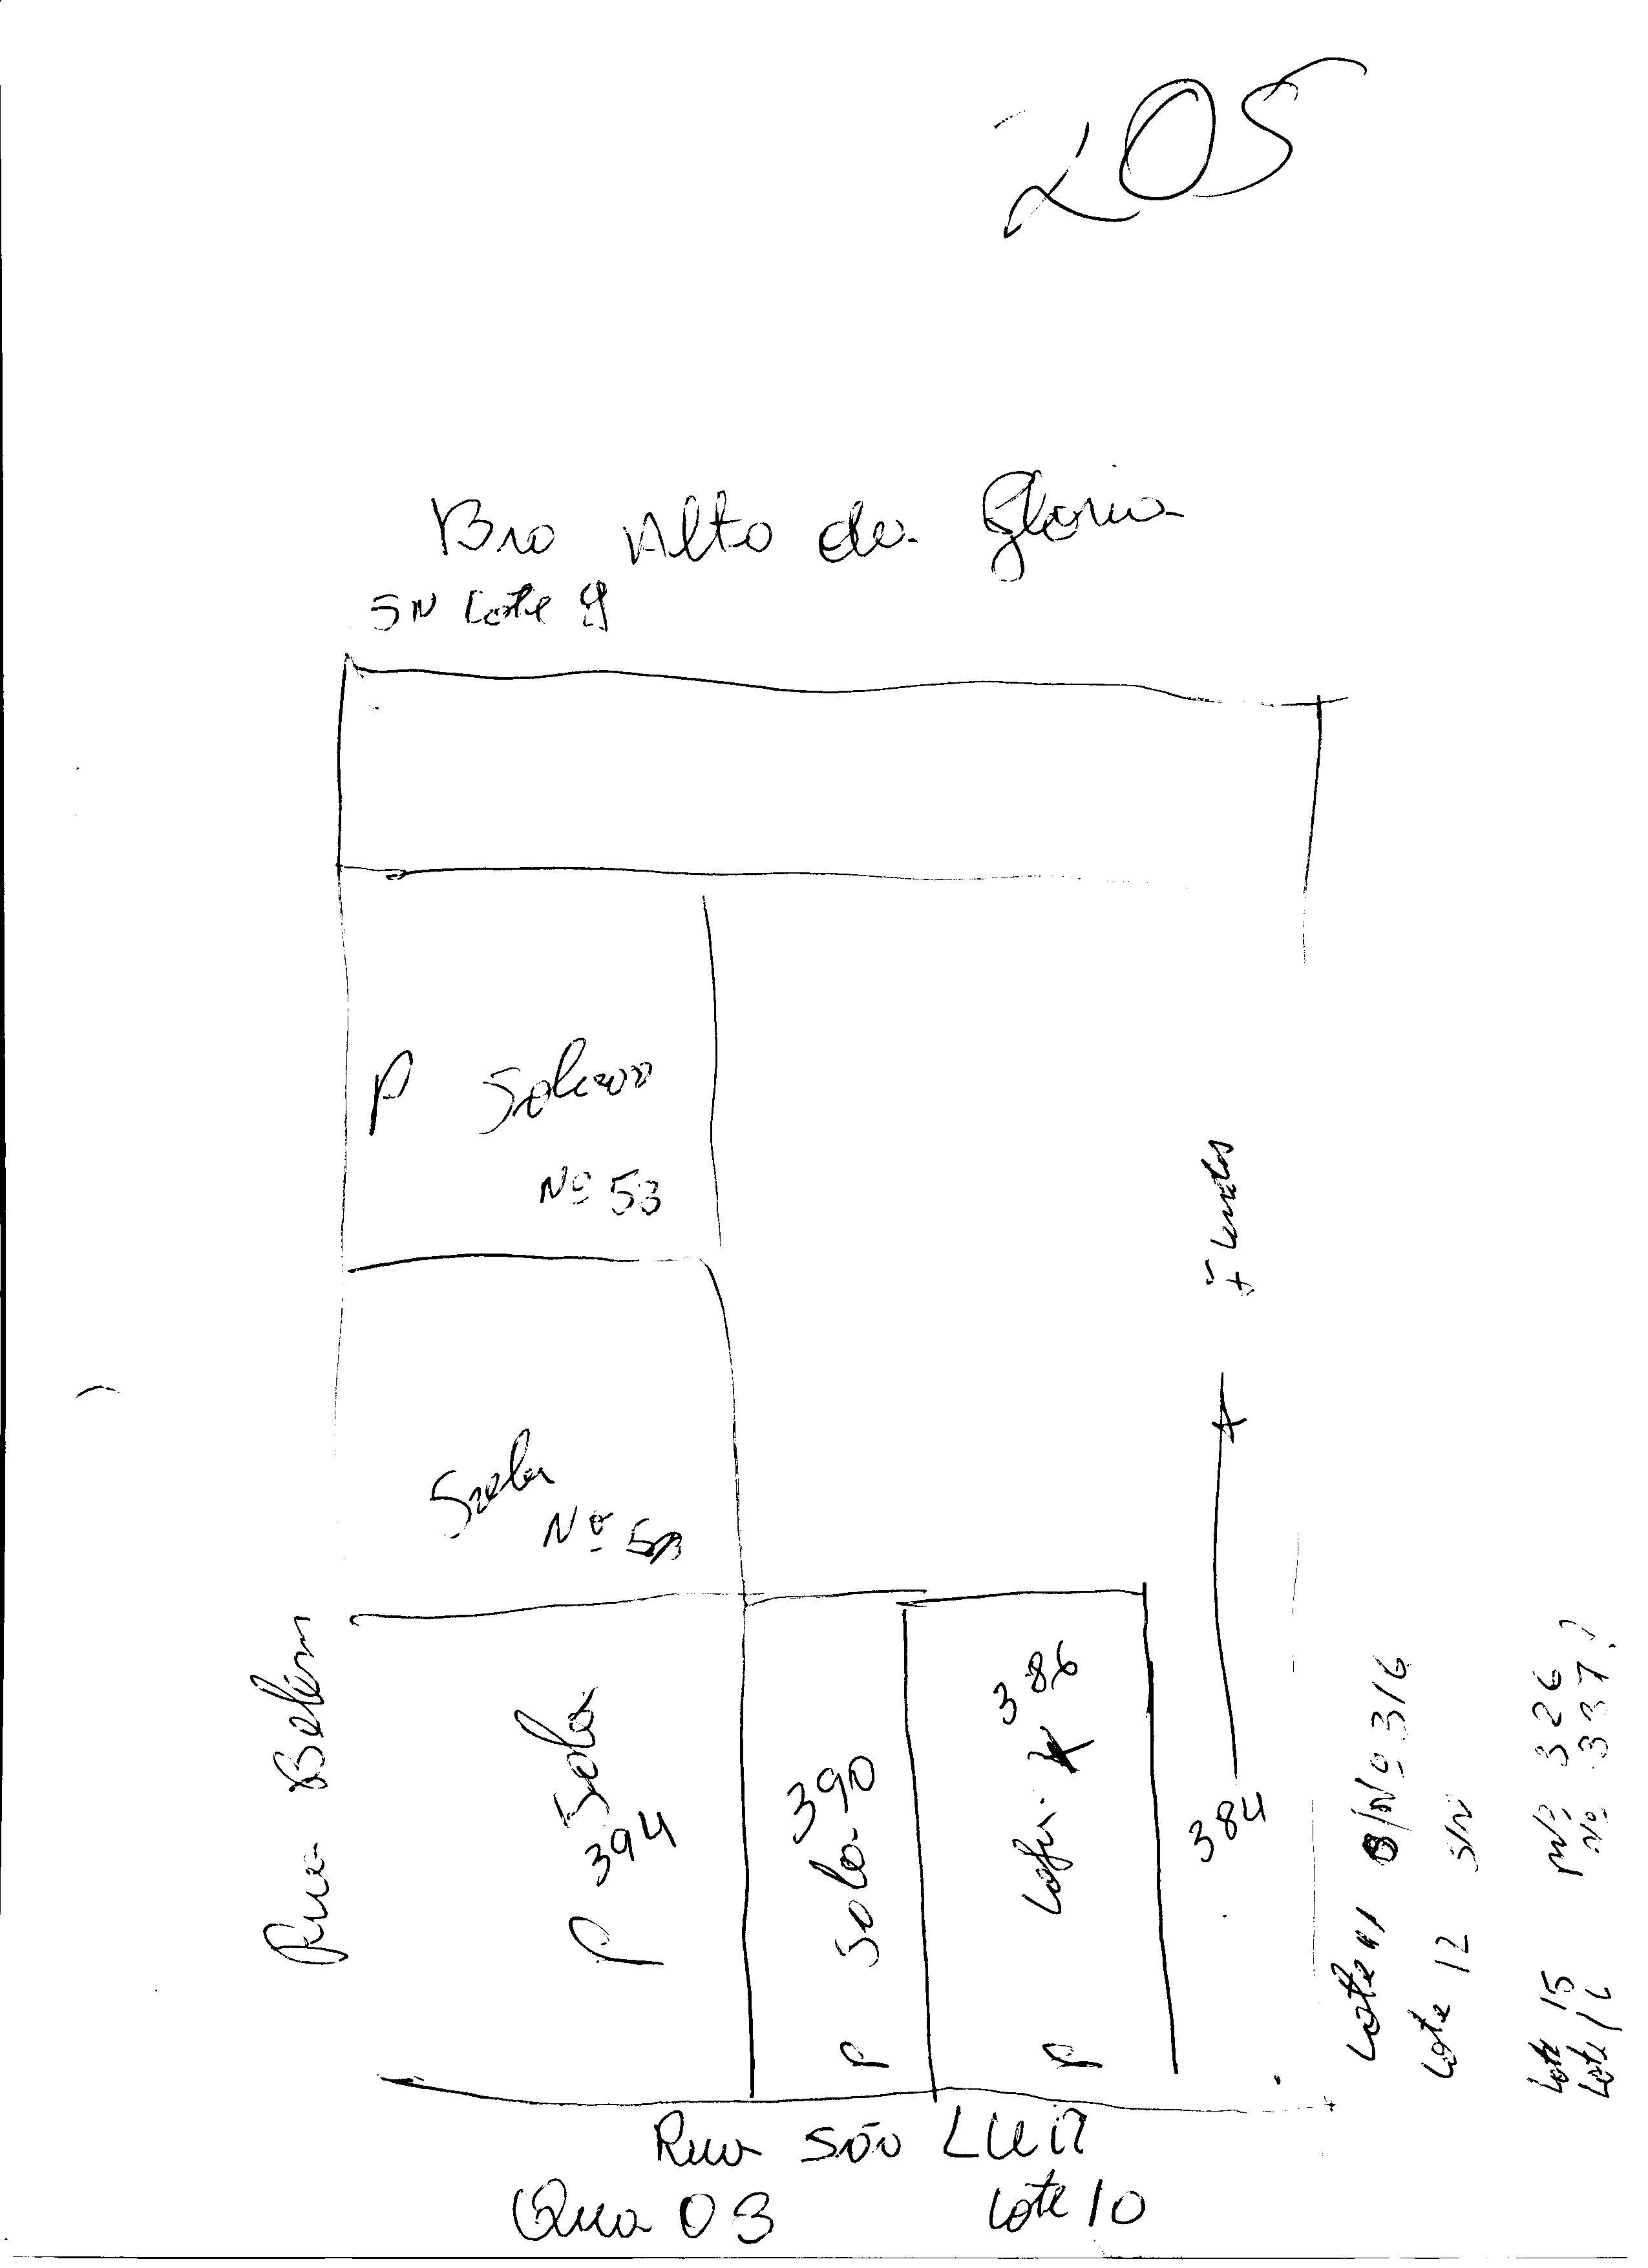 205
Bro Alto da Gloria
SN Lote 9
P
Nº 53
Nº
Rua Belém
P Sola
394
P Sola 390
P
386
384
Lote 11 S/Nº 316
Lote 12 S/N
Lote 15 Nº 326
Lote 16 Nº 337
Rua São LUIZ
Qua 03 Lote 10